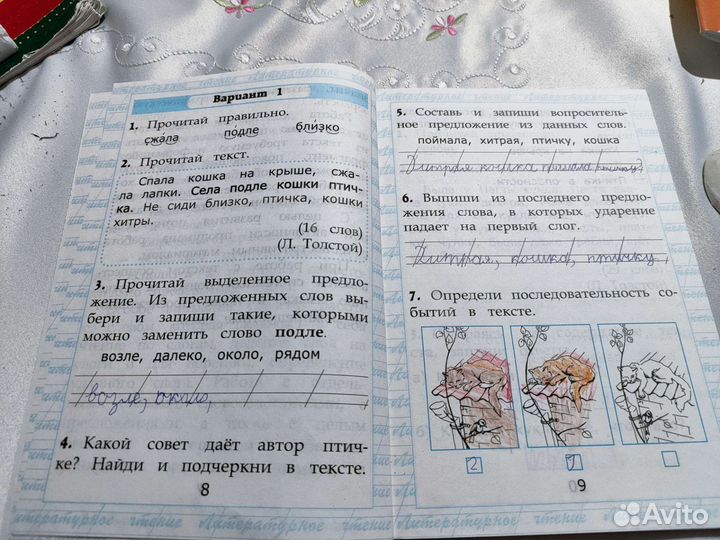 Вариант 1
1. Прочитай правильно.
сжала подле близко
2. Прочитай текст.
Спала кошка на крыше, сжа-
ла лапки. Села подле кошки птич-
ка. Не сиди близко, птичка, кошки
хитры.
(16 слов)
(Л. Толстой)
3. Прочитай выделенное предло-
жение. Из предложенных слов вы-
бери и запиши такие, которыми
можно заменить слово подле.
возле, далеко, около, рядом
возле, около,
4. Какой совет даёт автор птич-
ке? Найди и подчеркни в тексте.
8
литературное чтение Литературное
5. Составь и запиши вопроситель-
ное предложение из данных слов.
поймала, хитрая, птичку, кошка
Хитрая кошка поймала птичку?
6. Выпиши из последнего предло-
жения слова, в которых ударение
падает на первый слог.
Хитрая, кошка, птичку.
7. Определи последовательность со-
бытий в тексте.
2 1
09
Литературное чтение Литературное
Avito